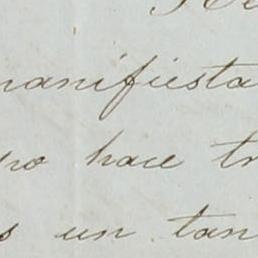 manifiesta
po hace tr
s un tan